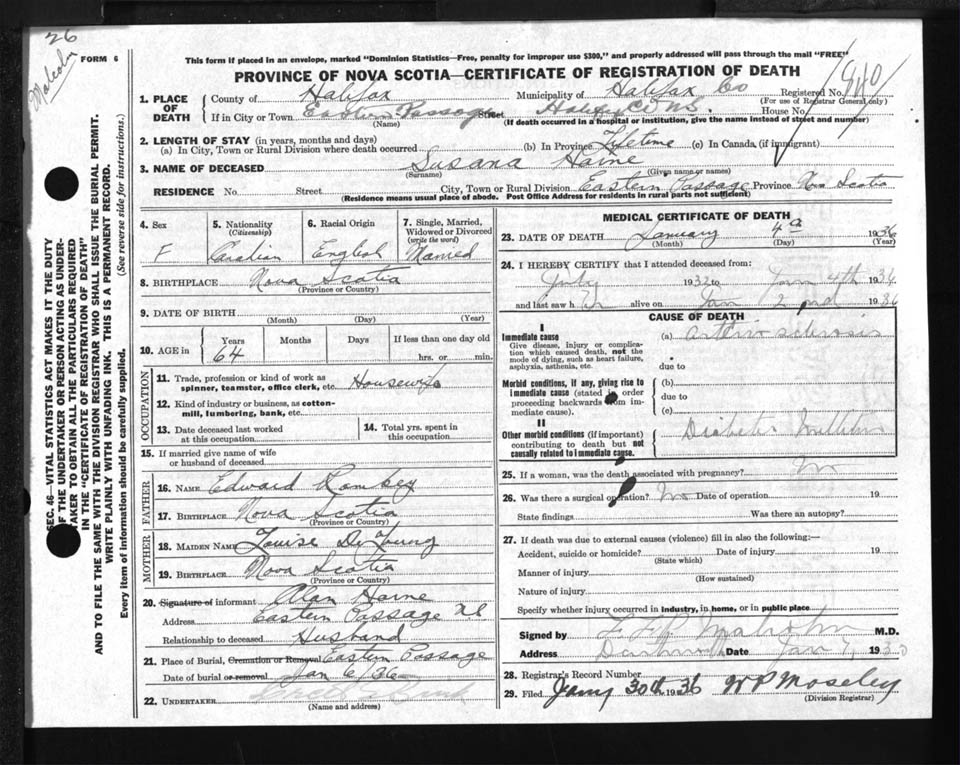 26
FORM 6
This form if placed in an envelope, marked "Dominion Statistics—Free, penalty for improper use $300," and properly addressed will pass through the mail "FREE"
PROVINCE OF NOVA SCOTIA—CERTIFICATE OF REGISTRATION OF DEATH
1. PLACE OF DEATH
County of Halifax Municipality of Halifax Co Registered No.
(For use of Registrar General only)
If in City or Town Eastern Passage Street Halifax Co N.S. House No.
(Name) (If death occurred in a hospital or institution, give the name instead of street and number)
2. LENGTH OF STAY (in years, months and days)
(a) In City, Town or Rural Division where death occurred (b) In Province Lifetime (c) In Canada (if immigrant)
3. NAME OF DECEASED Susana Horne
(Surname) (Given name or names)
RESIDENCE No. Street. City, Town or Rural Division Eastern Passage Province Nova Scotia
(Residence means usual place of abode. Post Office Address for residents in rural parts not sufficient)
SEC. 46—VITAL STATISTICS ACT MAKES IT THE DUTY
OF THE UNDERTAKER OR PERSON ACTING AS UNDER-
TAKER TO OBTAIN ALL THE PARTICULARS REQUIRED
IN THE "CERTIFICATE OF REGISTRATION OF DEATH"
AND TO FILE THE SAME WITH THE DIVISION REGISTRAR WHO SHALL ISSUE THE BURIAL PERMIT.
WRITE PLAINLY WITH UNFADING INK. THIS IS A PERMANENT RECORD.
Every item of information should be carefully supplied. (See reverse side for instructions.)
4. Sex
F
5. Nationality
(Citizenship)
Canadian
6. Racial Origin
English
7. Single, Married,
Widowed or Divorced
(write the word)
Married
8. BIRTHPLACE Nova Scotia
(Province or Country)
9. DATE OF BIRTH
(Month) (Day) (Year)
10. AGE in
Years Months Days If less than one day old
64 hrs. or min.
OCCUPATION
11. Trade, profession or kind of work as
spinner, teamster, office clerk, etc. Housewife
12. Kind of industry or business, as cotton-
mill, lumbering, bank, etc.
13. Date deceased last worked
at this occupation
14. Total yrs. spent in
this occupation
15. If married give name of wife
or husband of deceased
FATHER
16. NAME Edward Romkey
17. BIRTHPLACE Nova Scotia
(Province or Country)
MOTHER
18. MAIDEN NAME Louise DeYoung
19. BIRTHPLACE Nova Scotia
(Province or Country)
20. Signature of informant Alan Horne
Address Eastern Passage N.S.
Relationship to deceased Husband
21. Place of Burial, Cremation or Removal Eastern Passage
Date of burial or removal Jan 6/36
22. UNDERTAKER
(Name and address)
MEDICAL CERTIFICATE OF DEATH
23. DATE OF DEATH January 4th 1936
(Month) (Day) (Year)
24. I HEREBY CERTIFY that I attended deceased from:
July 1932 to Jan 4th 1936
and last saw her alive on Jan 2nd 1936
CAUSE OF DEATH
I
Immediate cause
Give disease, injury or complica-
tion which caused death, not the
mode of dying, such as heart failure,
asphyxia, asthenia, etc.
(a) arterio sclerosis
due to
Morbid conditions, if any, giving rise to
immediate cause (stated in order
proceeding backwards from im-
mediate cause).
(b)
due to
(c)
II
Other morbid conditions (if important)
contributing to death but not
causally related to immediate cause.
Diabetes Mellitus
25. If a woman, was the death associated with pregnancy? No
26. Was there a surgical operation? No Date of operation 19
State findings Was there an autopsy?
27. If death was due to external causes (violence) fill in also the following:—
Accident, suicide or homicide? Date of injury 19
(State which)
Manner of injury
(How sustained)
Nature of injury
Specify whether injury occurred in industry, in home, or in public place
Signed by M.D.
Address Dartmouth Date Jan 7, 19
28. Registrar's Record Number
29. Filed Jany 30th 1936 W P Moseley
(Division Registrar)